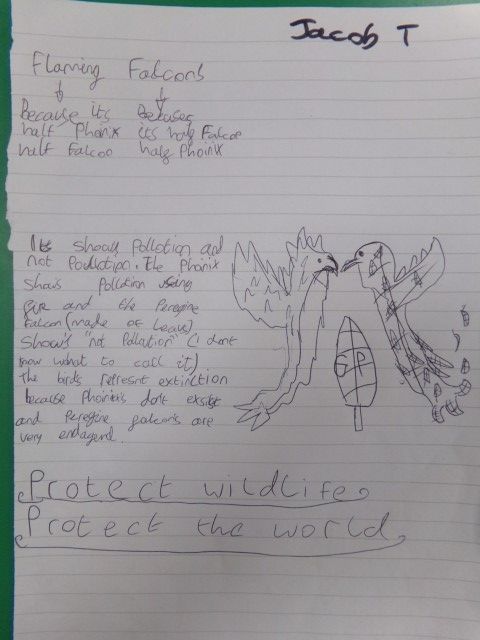 Jacob T
Flaming Falcons
Because its Because
half Phonix its half Falcoo
half Falcoo half Phoinix
Its shows Pollotion and
not Pollotion. The Phonix
shows Pollotion using
fire and the Peregine
Falcon (made of leaves)
shows "not Pollation" (i dont
now what to call it)
The birds represnt extinction
because Phoinixis dont exsist
and Peregine falcons are
very endagerd.
GP
Protect wildlife,
Protect the world,